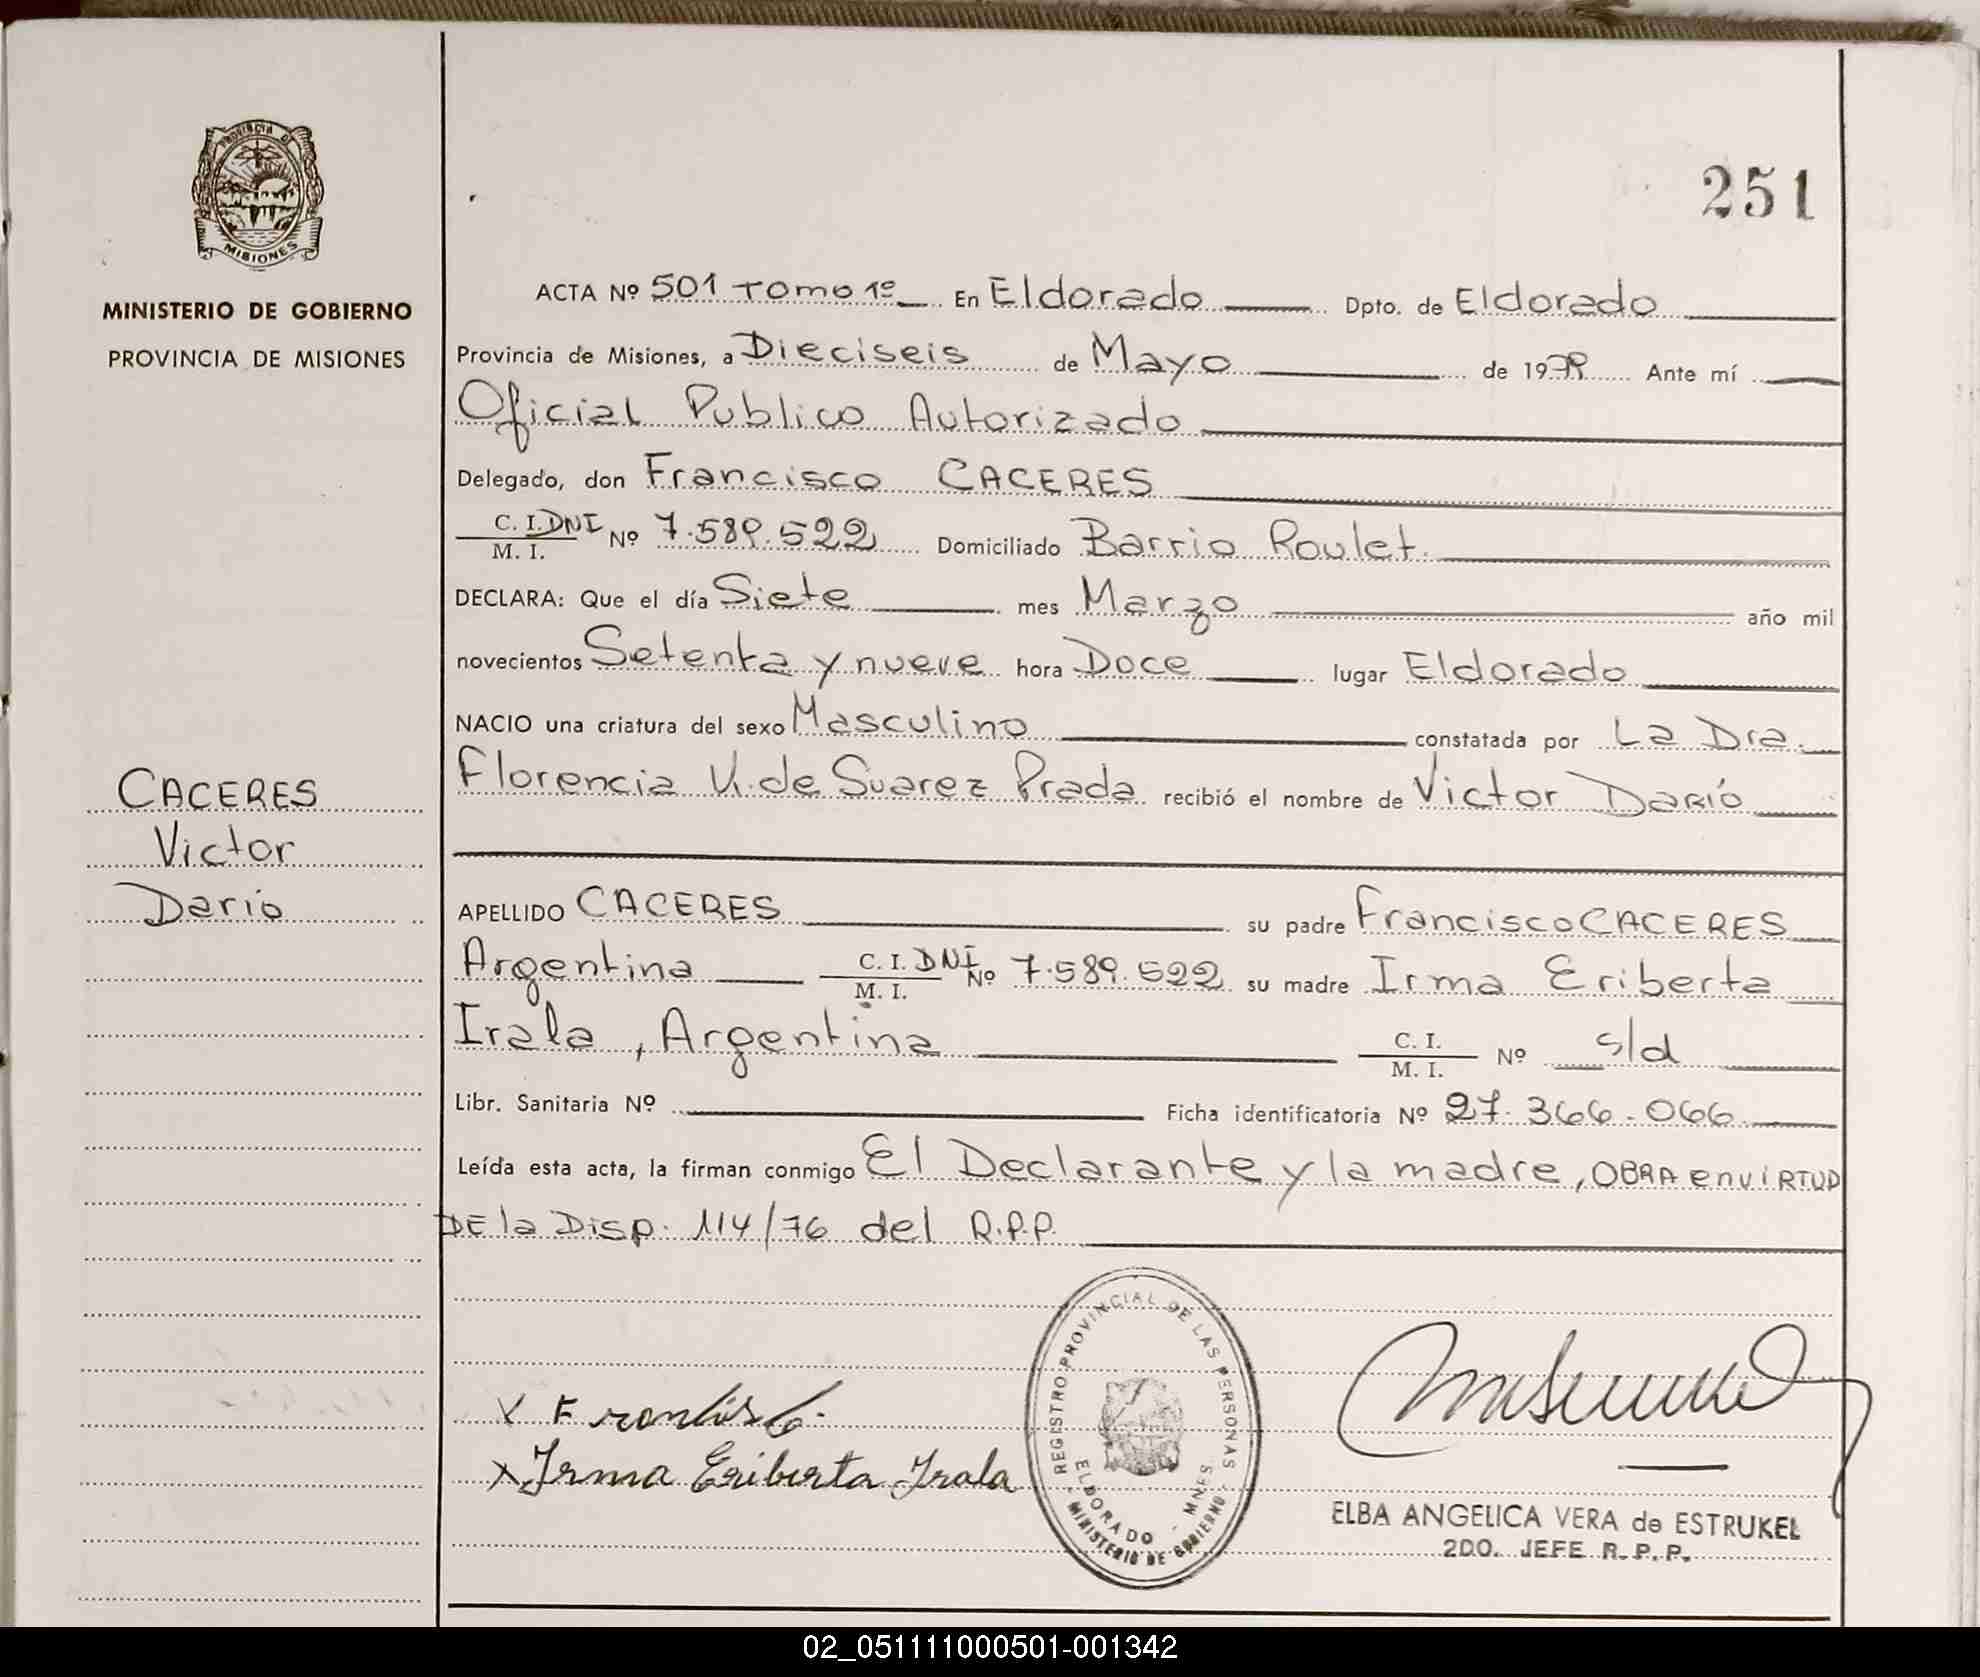 PROVINCIA DE
MISIONES
MINISTERIO DE GOBIERNO
PROVINCIA DE MISIONES
251
ACTA Nº 501 Tomo 1º En Eldorado Dpto. de Eldorado
Provincia de Misiones, a Dieciseis de Mayo de 1979 Ante mí
Oficial Publico Autorizado
Delegado, don Francisco CACERES
C. I. DNI Nº 7.589.522 Domiciliado Barrio Roulet.
M. I.
DECLARA: Que el día Siete mes Marzo año mil
novecientos Setenta y nueve hora Doce lugar Eldorado
NACIO una criatura del sexo Masculino constatada por La Dra.
Florencia V. de Suarez Prada recibió el nombre de Victor Darío
CACERES
Victor
Dario
APELLIDO CACERES su padre Francisco CACERES
Argentina C. I. DNI Nº 7.589.522 su madre Irma Eriberta
M. I.
Irala, Argentina C. I. Nº s/d
M. I.
Libr. Sanitaria Nº Ficha identificatoria Nº 27.366.066
Leída esta acta, la firman conmigo El Declarante y la madre, OBRA en viRTUD
DE la Disp. 114/76 del R.P.P.
REGISTRO PROVINCIAL DE LAS PERSONAS
ELDORADO - MNES.
MINISTERIO DE GOBIERNO
X
X Irma Eriberta Irala
ELBA ANGELICA VERA de ESTRUKEL
2DO. JEFE R. P. P.
02_051111000501-001342